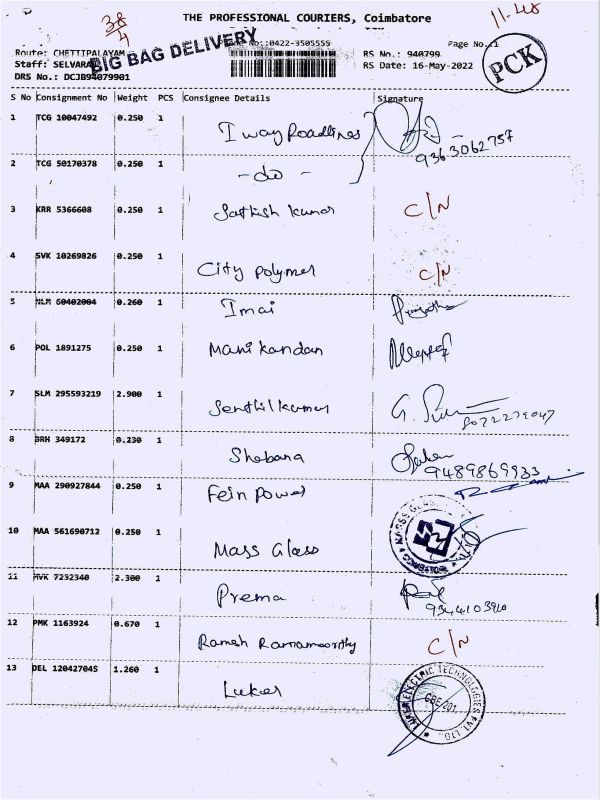 38/4
THE PROFESSIONAL COURIERS, Coimbatore
11.48
Route: CHETTIPALAYAM
No:0422-3505555
Page No.:1
Staff: SELVARAJ
BIG BAG DELIVERY
RS No.: 940799
DRS No.: DCJB94079901
RS Date: 16-May-2022
PCK
S No Consignment No Weight PCS Consignee Details Signature
1 TCG 10047492 0.250 1 I way Roadlines 9363062757
2 TCG 50170378 0.250 1 - do -
3 KRR 5366608 0.250 1 Sathish kumar C/N
4 SVK 10269826 0.250 1 City polymer C/N
5 NLM 60402004 0.260 1 Imai
6 POL 1891275 0.250 1 Manikandan
7 SLM 295593219 2.900 1 Senthil kumar
8 BRH 349172 0.230 1 Shabana 9489869933
9 MAA 290927844 0.250 1 Fein power
10 MAA 561690712 0.250 1 Mass Glass
11 MVK 7232340 2.300 1 Prema
12 PMK 1163924 0.670 1 Ramesh Ramamoorthy C/N
13 DEL 120427045 1.260 1 Luker
LUKER ELECTRIC TECHNOLOGIES PVT LTD